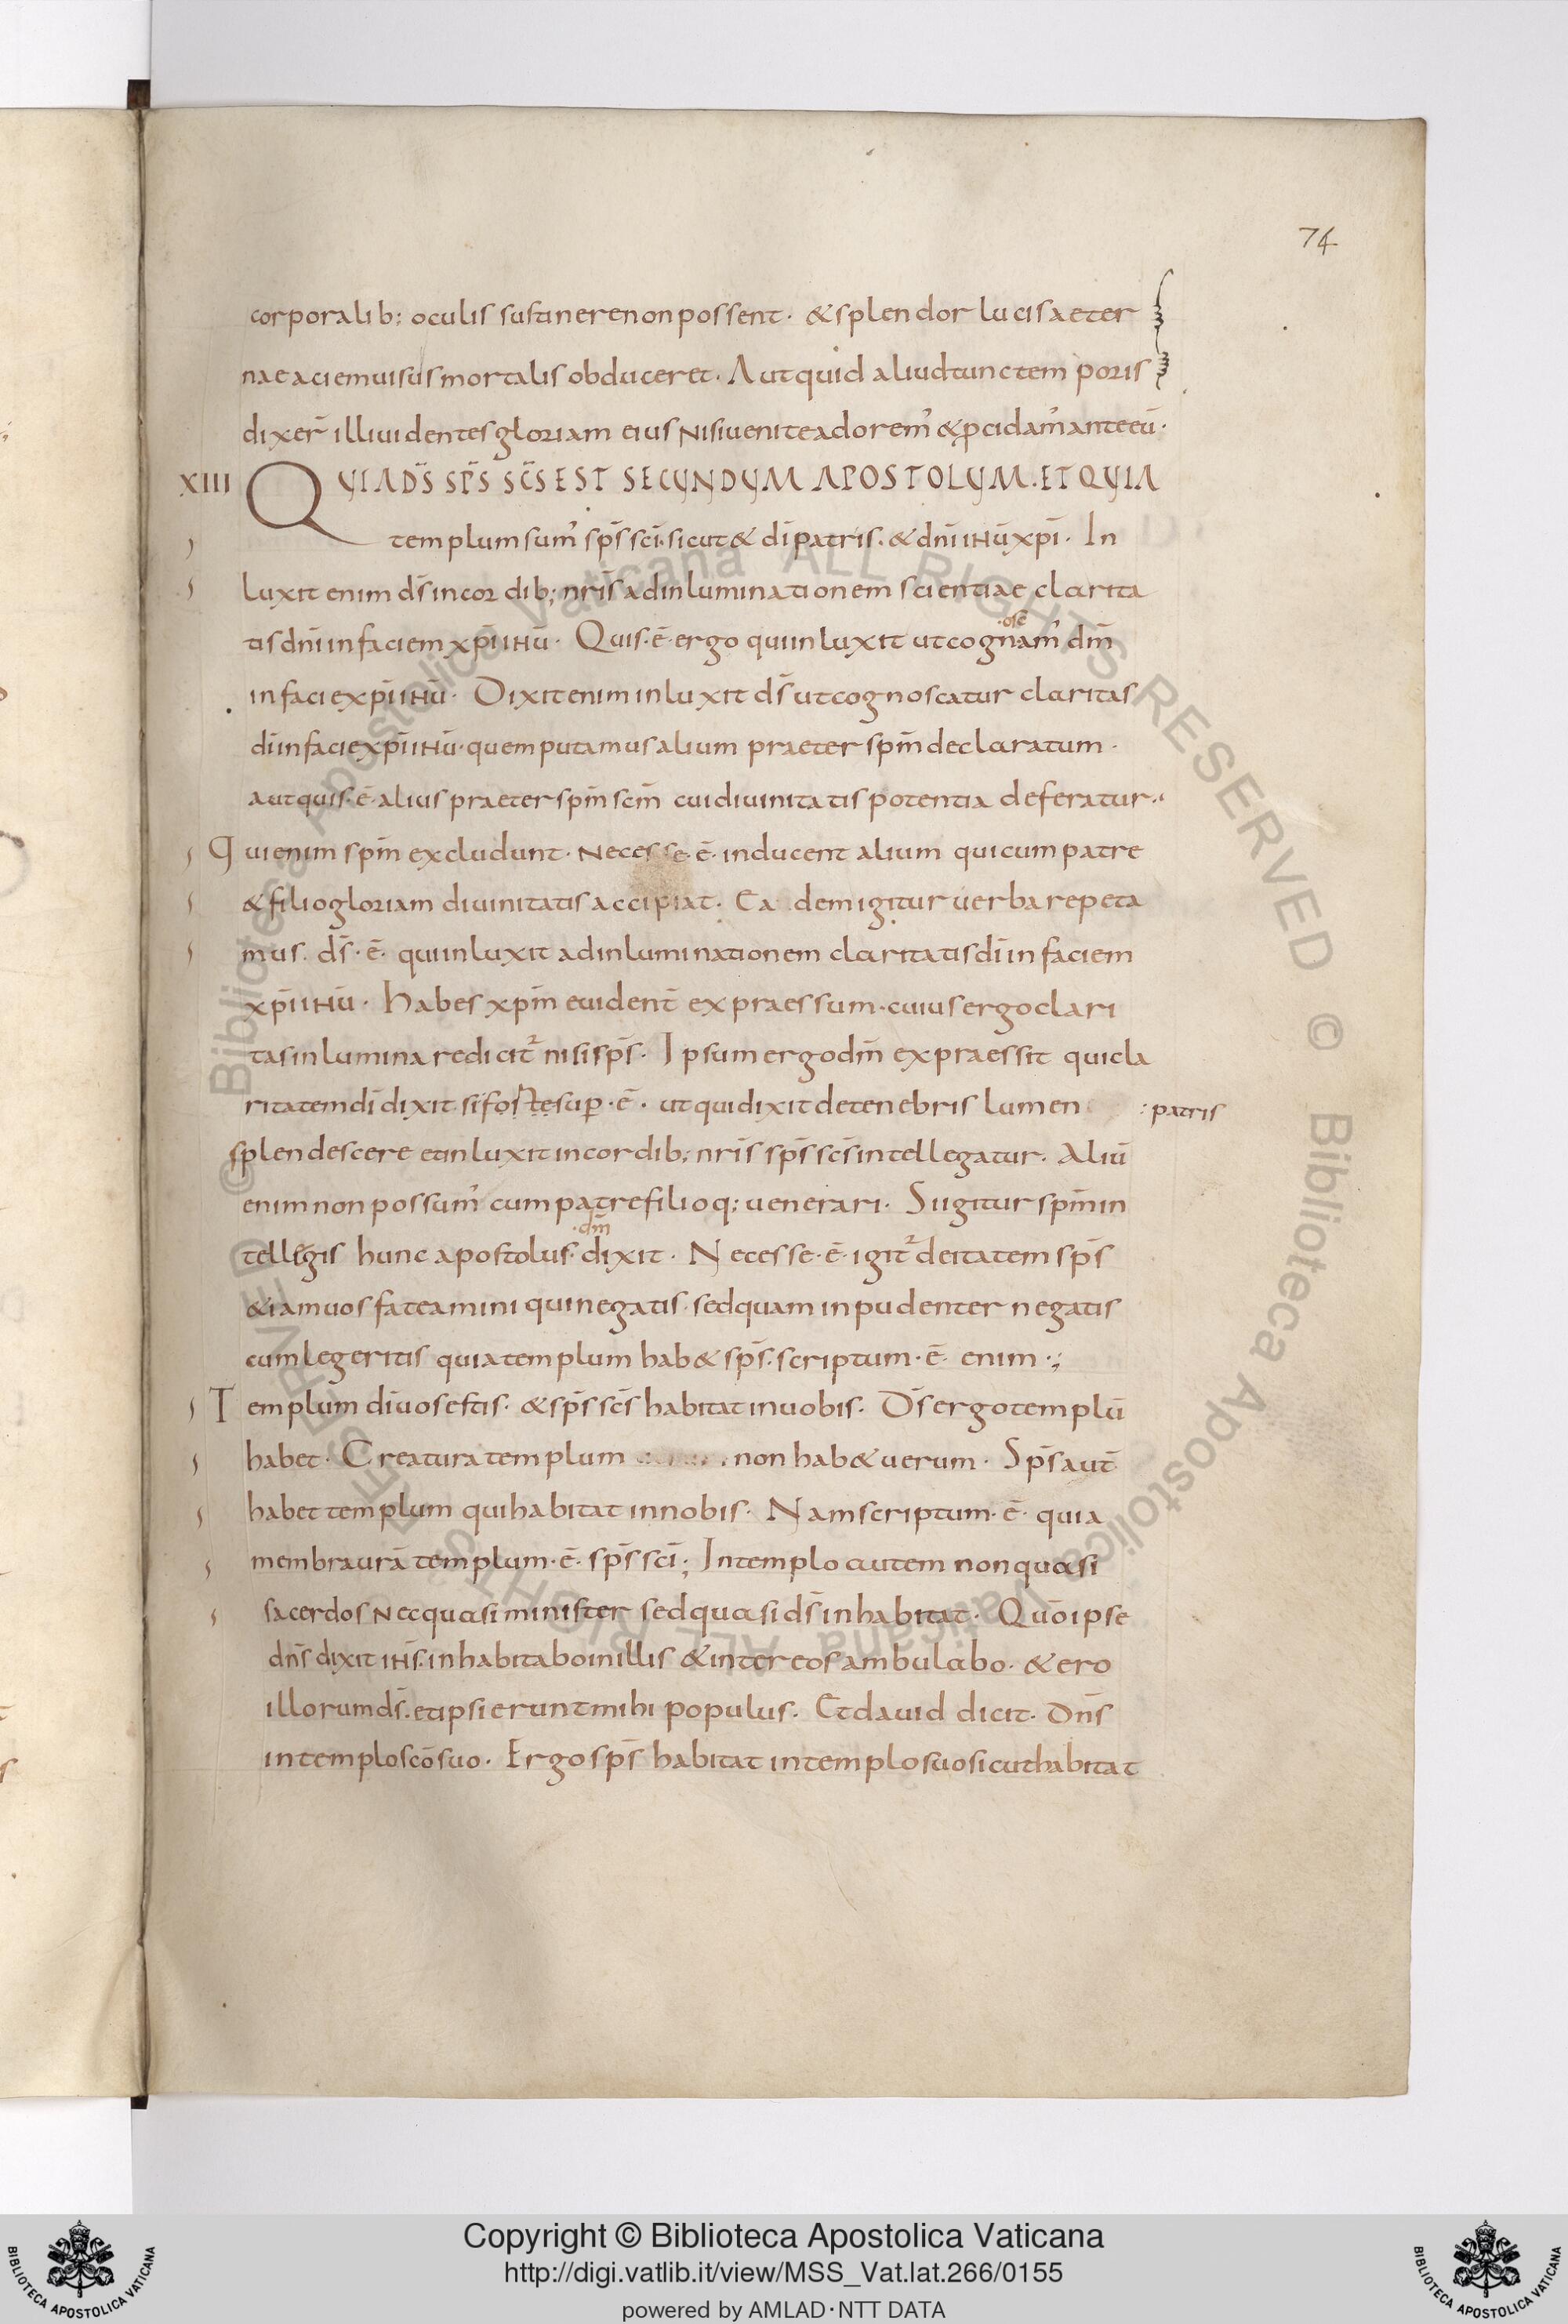 74
corporalib; oculis sustinere non possent. & splendor lucis aeter
nae aciem uisus mortalis obduceret. Aut quid aliud tunc temporis
dixer̄ illi uidentes gloriam eius Nisi uenite adorem' & ꝓcidam' ante eū.
XIII QUIA DS̄ SPS̄ SCS̄ EST SECUNDUM APOSTOLUM. ET QUIA
templum sum' sps̄ scī. sicut & dī patris. & dnī ihū xpī. In
luxit enim ds̄ in cordib; nrīs ad inluminationem scientiae clarita
tis dnī in faciem xpī ihū. Quis. ē. ergo qui inluxit ut cognam' dm̄
in faciē xpī ihū. Dixit enim inluxit ds̄ ut cognoscatur claritas
dī in faciē xpī ihū. quem putamus alium praeter spm̄ declaratum.
aut quis. ē. alius praeter spm̄ scm̄ cui diuinitatis potentia deferatur.
Qui enim spm̄ excludunt. Necesse. ē. inducent alium qui cum patre
& filio gloriam diuinitatis accipiat. Eadem igitur uerba repeta
mus. ds̄. ē. qui inluxit ad inluminationem claritatis dī in faciem
xpī ihū. Habes xpm̄ euident̄ expraessum. cuius ergo clari
tas inluminare dicit² nisi sps̄. Ipsum ergo dm̄ expraessit qui cla
ritatem dī dixit. si foste sup̄. ē. ut qui dixit de tenebris lumen :patris
splendescere et inluxit in cordib; nrīs sps̄ scs̄ intellegatur. Aliū
enim non possum' cum patre filioq; uenerari. Si igitur spm̄ in
·dm̄
tellegis hunc apostolus. dixit. Necesse. ē. igit² deitatem sps̄
& iam uos fateamini qui negatis. sed quam inpudenter negatis
cum legeritis quia templum hab& sps̄. scriptum. ē. enim.;
Templum dī uos estis. & sps̄ scs̄ habitat in uobis. Ds̄ ergo templū
habet. Creatura templum non hab& uerum. Sps̄ aut̄
habet templum qui habitat in nobis. Nam scriptum. ē. quia
membra urā templum. ē. sps̄ scī; In templo autem non quasi
sacerdos Nec quasi minister sed quasi ds̄ inhabitat. Quō ipse
dns̄ dixit ihs̄. inhabitabo in illis & inter eos ambulabo. & ero
illorum ds̄. et ipsi erunt mihi populus. Et dauid dicit. Dns̄
in templo scō suo. Ergo sps̄ habitat in templo suo sicut habitat
© Biblioteca Apostolica Vaticana ALL RIGHTS RESERVED
Copyright © Biblioteca Apostolica Vaticana
http://digi.vatlib.it/view/MSS_Vat.lat.266/0155
powered by AMLAD·NTT DATA
BIBLIOTECA APOSTOLICA VATICANA
BIBLIOTECA APOSTOLICA VATICANA